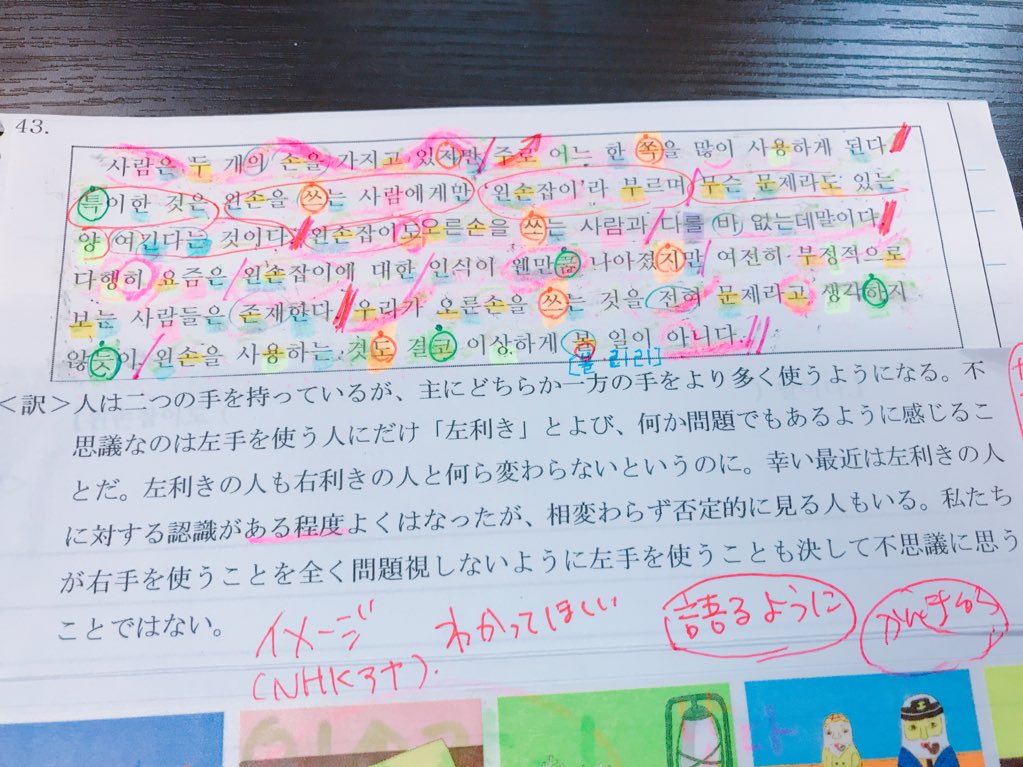 43.
사람은 두 개의 손을 가지고 있지만 주로 어느 한 쪽을 많이 사용하게 된다.
특이한 것은 왼손을 쓰는 사람에게만 '왼손잡이'라 부르며 무슨 문제라도 있는
양 여긴다는 것이다. 왼손잡이도 오른손을 쓰는 사람과 다를 바 없는데말이다.
다행히 요즘은 왼손잡이에 대한 인식이 웬만큼 나아졌지만 여전히 부정적으로
보는 사람들은 존재한다. 우리가 오른손을 쓰는 것을 전혀 문제라고 생각하지
않듯이 왼손을 사용하는 것도 결코 이상하게 볼 일이 아니다.
[볼 리리]
<訳>人は二つの手を持っているが、主にどちらか一方の手をより多く使うようになる。不
思議なのは左手を使う人にだけ「左利き」とよび、何か問題でもあるように感じるこ
とだ。左利きの人も右利きの人と何ら変わらないというのに。幸い最近は左利きの人
に対する認識がある程度よくはなったが、相変わらず否定的に見る人もいる。私たち
が右手を使うことを全く問題視しないように左手を使うことも決して不思議に思う
ことではない。
イメージ わかってほしい 語るように
(NHKアナ).